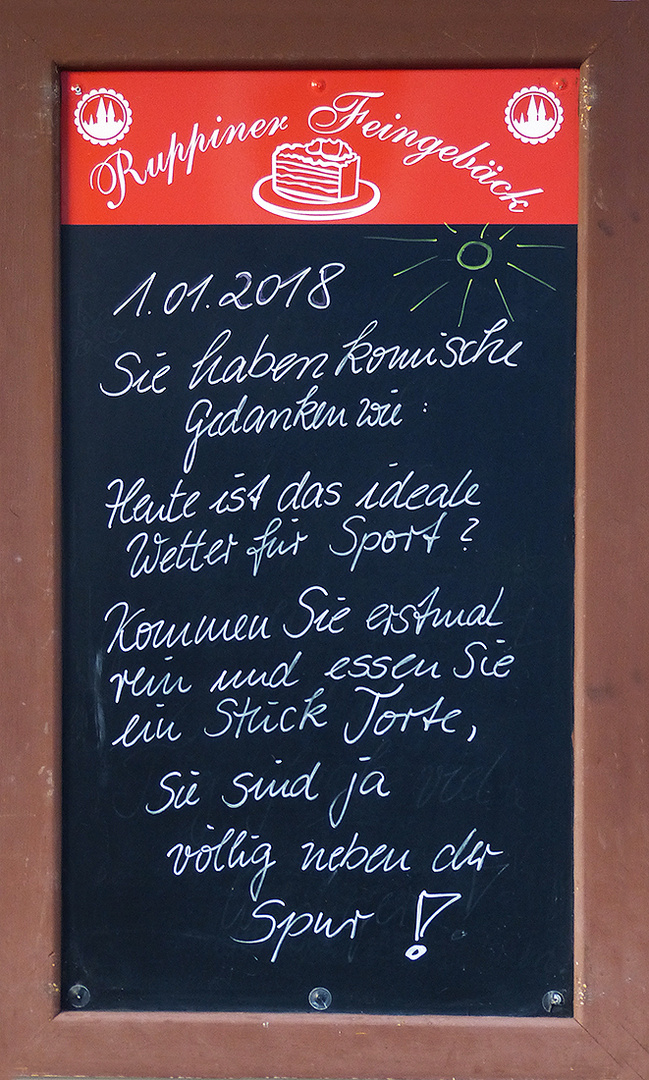 Ruppiner Feingebäck
1.01.2018
Sie haben komische
Gedanken wie:
Heute ist das ideale
Wetter für Sport?
Kommen Sie erstmal
rein und essen Sie
ein Stück Torte,
Sie sind ja
völlig neben der
Spur!